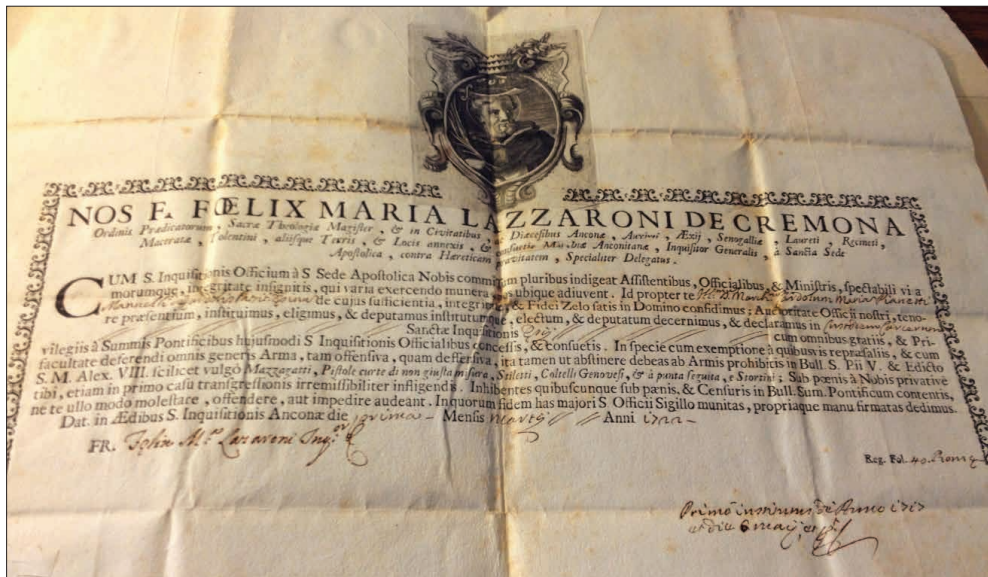 NOS F. FŒLIX MARIA LAZZARONI DE CREMONA
Ordinis Prædicatorum, Sacræ Theologiæ Magister, & in Civitatibus & Diæcesibus Anconæ, Auximi, Æxij, Senogalliæ, Laureti, Recineti,
Maceratæ, Tolentini, aliisque Terris, & Locis annexis, & Marchiæ Anconitanæ, Inquisitor Generalis, à Sancta Sede
Apostolica, contra Hæreticam pravitatem, Specialiter Delegatus.
CUM S. Inquisitionis Officium à S. Sede Apostolica Nobis commissum pluribus indigeat Assistentibus, Officialibus, & Ministris, spectabili vi a
morumque, integritate insignitis, qui varia exercendo munera nos ubique adiuvent. Id propter te
de cujus sufficientia, integritate, & Fidei Zelo satis in Domino confidimus; Auctoritate Officij nostri, teno-
re præsentium, instituimus, eligimus, & deputamus institutumque, electum, & deputatum decernimus, & declaramus in
Sanctæ Inquisitionis cum omnibus gratiis, & Pri-
vilegiis à Summis Pontificibus hujusmodi S. Inquisitionis Officialibus concessis, & consuetis. In specie cum exemptione à quibusvis represaliis, & cum
facultate deferendi omnis generis Arma, tam offensiva, quam deffensiva, ita tamen ut abstinere debeas ab Armis prohibitis in Bull. S. Pii V. & Edicto
S. M. Alex. VIII. scilicet vulgò Mazzagatti, Pistole curte di non giusta misura, Stiletti, Coltelli Genovesi, & à punta seguita, e Stortini; Sub pœnis à Nobis privative
tibi, etiam in primo casu transgressionis irremissibiliter infligendis. Inhibentes quibuscunque sub pœnis, & Censuris in Bull. Sum. Pontificum contentis,
ne te ullo modo molestare, offendere, aut impedire audeant. Inquorum fidem has majori S. Officii Sigillo munitas, propriaque manu firmatas dedimus.
Dat. in Ædibus S. Inquisitionis Anconæ die prima Mensis Martij Anni
FR. Felix M.ª Lazaroni Inq.or
Reg. Fol. 40.
Primò Anno 1717